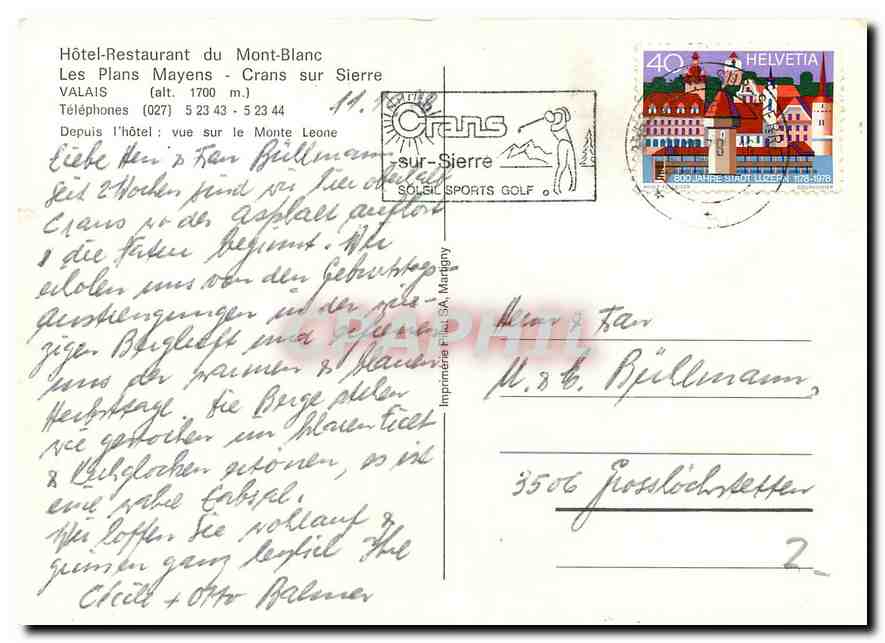 Hôtel-Restaurant du Mont-Blanc
Les Plans Mayens - Crans sur Sierre
VALAIS (alt. 1700 m.)
Téléphones (027) 5 23 43 - 5 23 44
Depuis l'hôtel : vue sur le Monte Leone
11.
Liebe Herr & Frau Büllmann
Seit 2 Wochen sind wir hier oberhalb
Crans wo der Asphalt aufhört
& die Natur beginnt. Wir
erholen uns von den Geburtstags-
anstrengungen in der wür-
zigen Bergluft und
uns der warmen & blauen
Herbsttage. Die Berge stehen
wie gestochen im blauen Licht
& Kuhglocken ertönen, es ist
eine wahre Labsal.
Wir hoffen Sie wohlauf &
grüssen ganz herzlich Ihre
Cécile + Otto Balmer
Imprimerie Pillet SA, Martigny
Crans
-sur-Sierre
SOLEIL SPORTS GOLF
40 HELVETIA
800 JAHRE STADT LUZERN 1178-1978
COURVOISIER
CRAPHIL
Herrn & Frau
M. & C. Büllmann,
3506 Grosshöchstetten
2.-